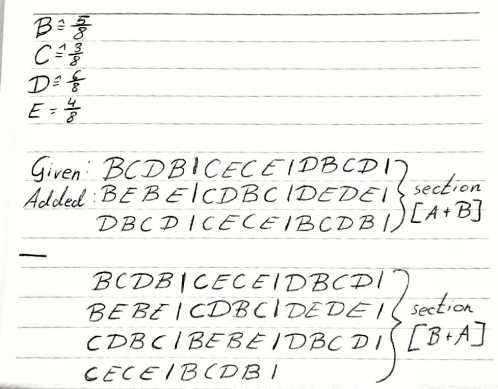 B ≙ 5/8
C ≙ 3/8
D ≙ 6/8
E = 4/8
Given: BCDB|CECE|DBCD|
Added: BEBE|CDBC|DEDE| section
DBCD|CECE|BCDB| [A+B]
—
BCDB|CECE|DBCD|
BEBE|CDBC|DEDE| section
CDBC|BEBE|DBCD| [B+A]
CECE|BCDB|